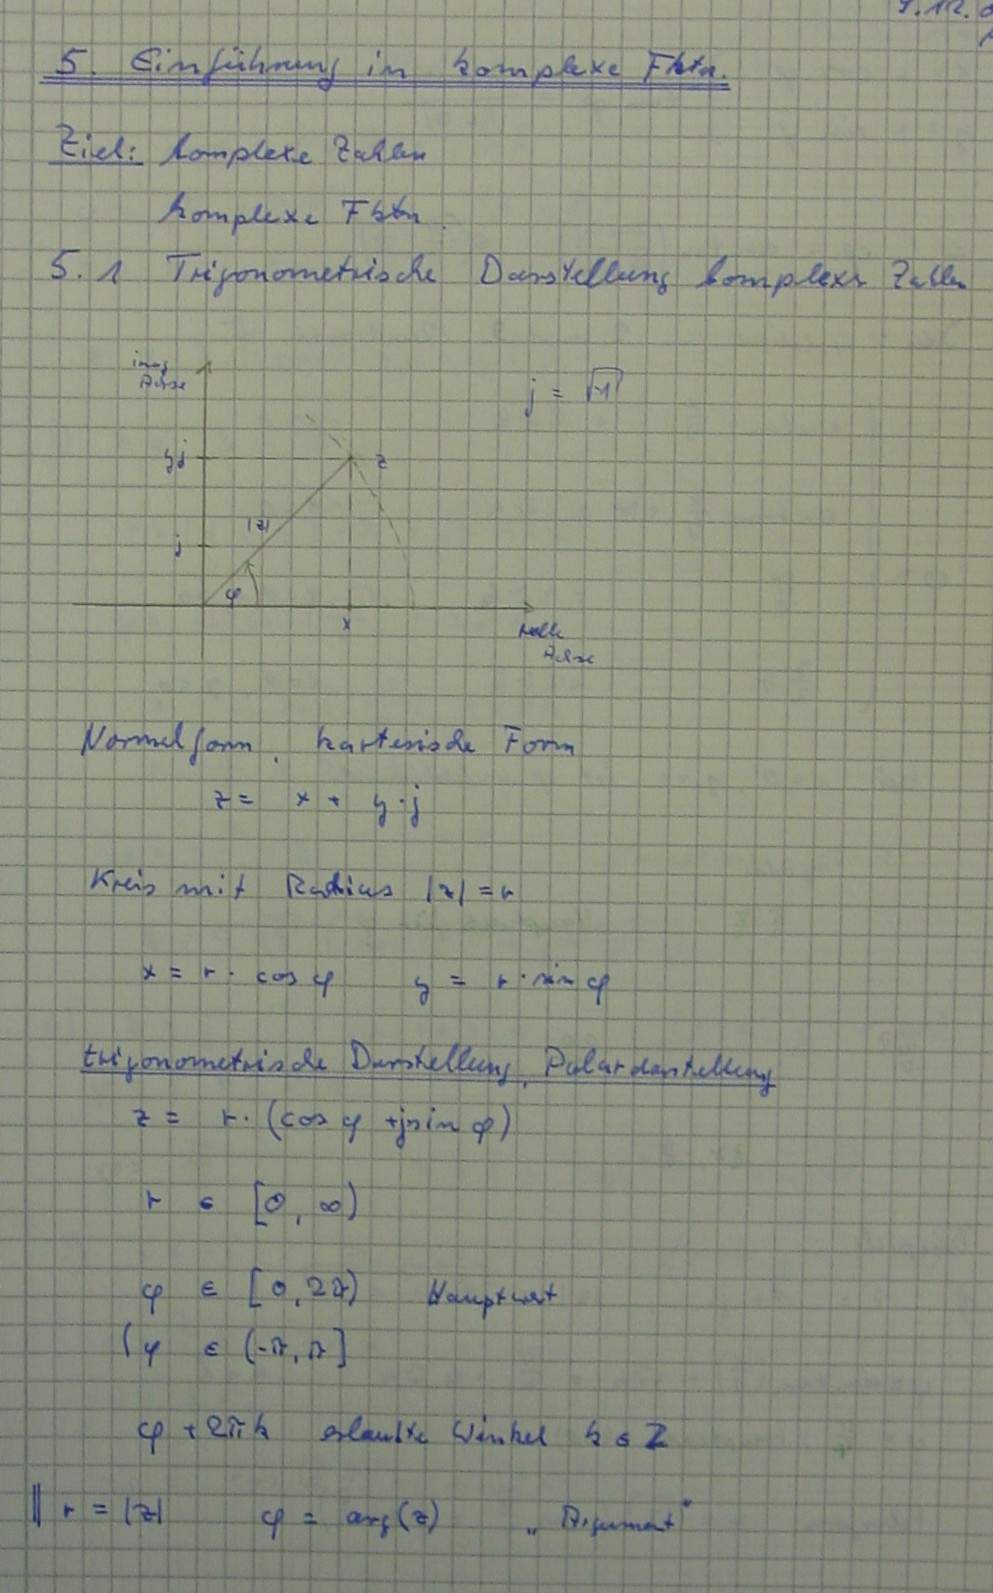 5. Einführung in komplexe Fktn.
Ziel: komplexe Zahlen
komplexe Fktn.
5.1 Trigonometrische Darstellung komplexer Zahlen
imag
Achse
j = √-1
yj
z
|z|
j
φ
x
reelle
Achse
Normalform, kartesische Form
z = x + y·j
Kreis mit Radius |z| = r
x = r · cos φ y = r · sin φ
trigonometrische Darstellung, Polardarstellung
z = r · (cos φ + j sin φ)
r ∈ [0, ∞)
φ ∈ [0, 2π) Hauptwert
( φ ∈ (-π, π]
φ + 2πk erlaubte Winkel k ∈ Z
|| r = |z| φ = arg(z) „Argument"